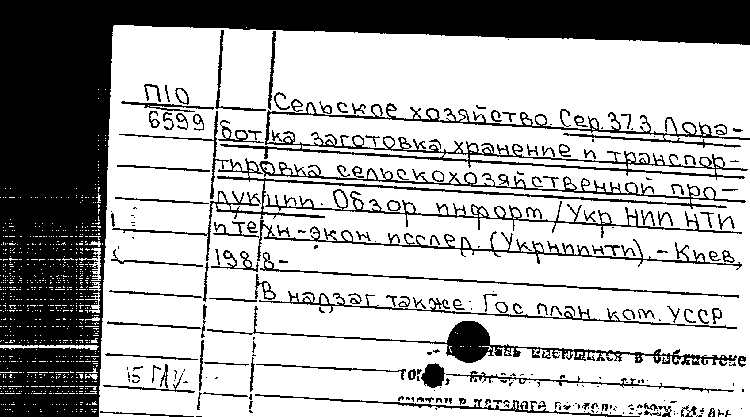 П10
6599
Сельское хозяйство. Сер. 37.3. Дора-
ботка, заготовка, хранение и транспор-
тировка сельскохозяйственной про-
дукции. Обзор. информ. / Укр. НИИ НТИ
и техн.-экон. исслед. (УкрНИИНТИ). - Киев,
1988-
В надзаг. также: Гос. план. ком. УССР
имеющихся в библиотеке
смотри в каталоге